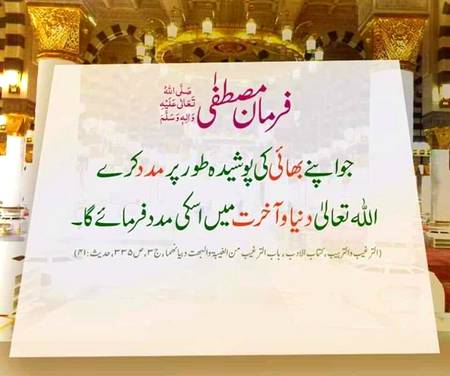 فرمانِ مصطفٰی صَلَّی اللہُ تَعَالٰی عَلَیْہِ وَاٰلِہٖ وَسَلَّم
جو اپنے بھائی کی پوشیدہ طور پر مدد کرے
اللہ تعالیٰ دنیا و آخرت میں اسکی مدد فرمائے گا۔
(الترغیب والترہیب، کتاب الادب، باب الترغیب من الغیبۃ والبہت وبیانھما، ج۳، ص۳۳۵، حدیث:۴۱)